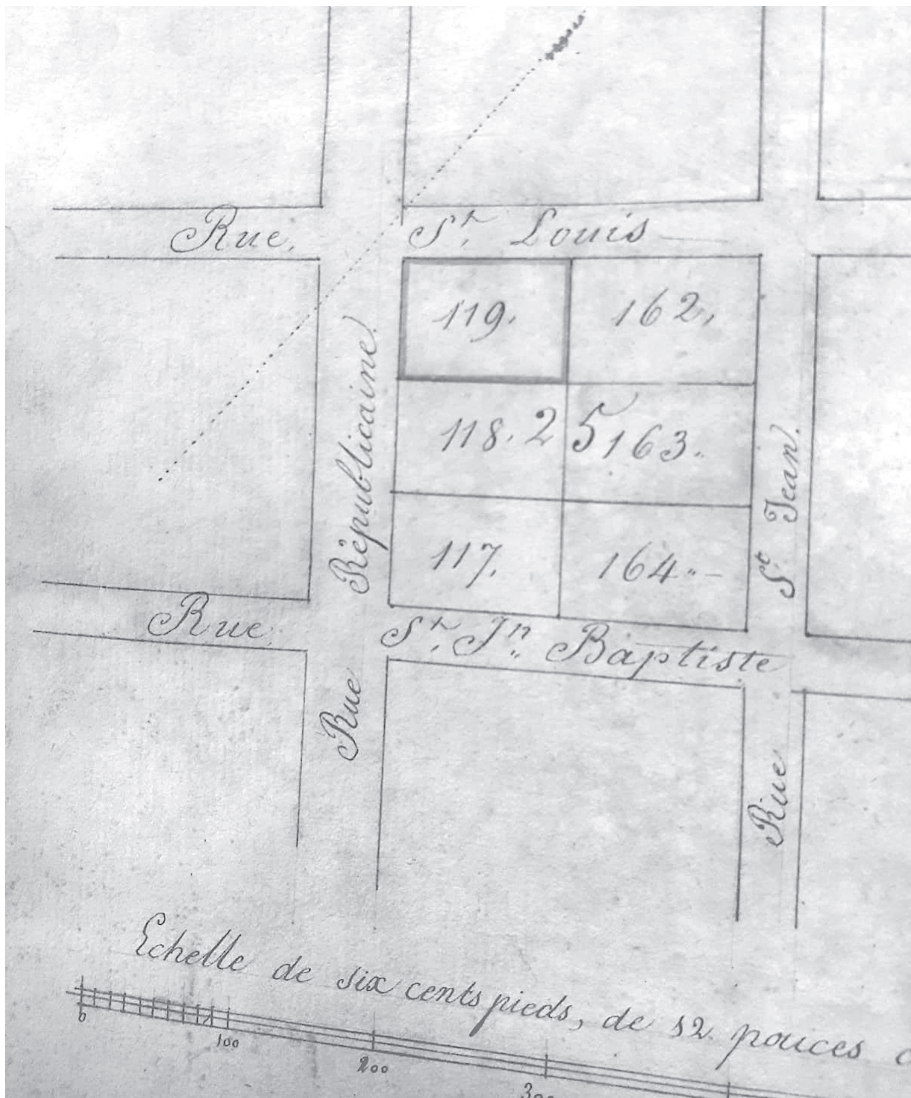 Rue. St. Louis
119. 162.
118. 25 163.
117. 164.
Rue Républicaine
Rue St Jean
Rue St. Jn. Baptiste
Echelle de six cents pieds, de 12 pouces
0 100 200 300